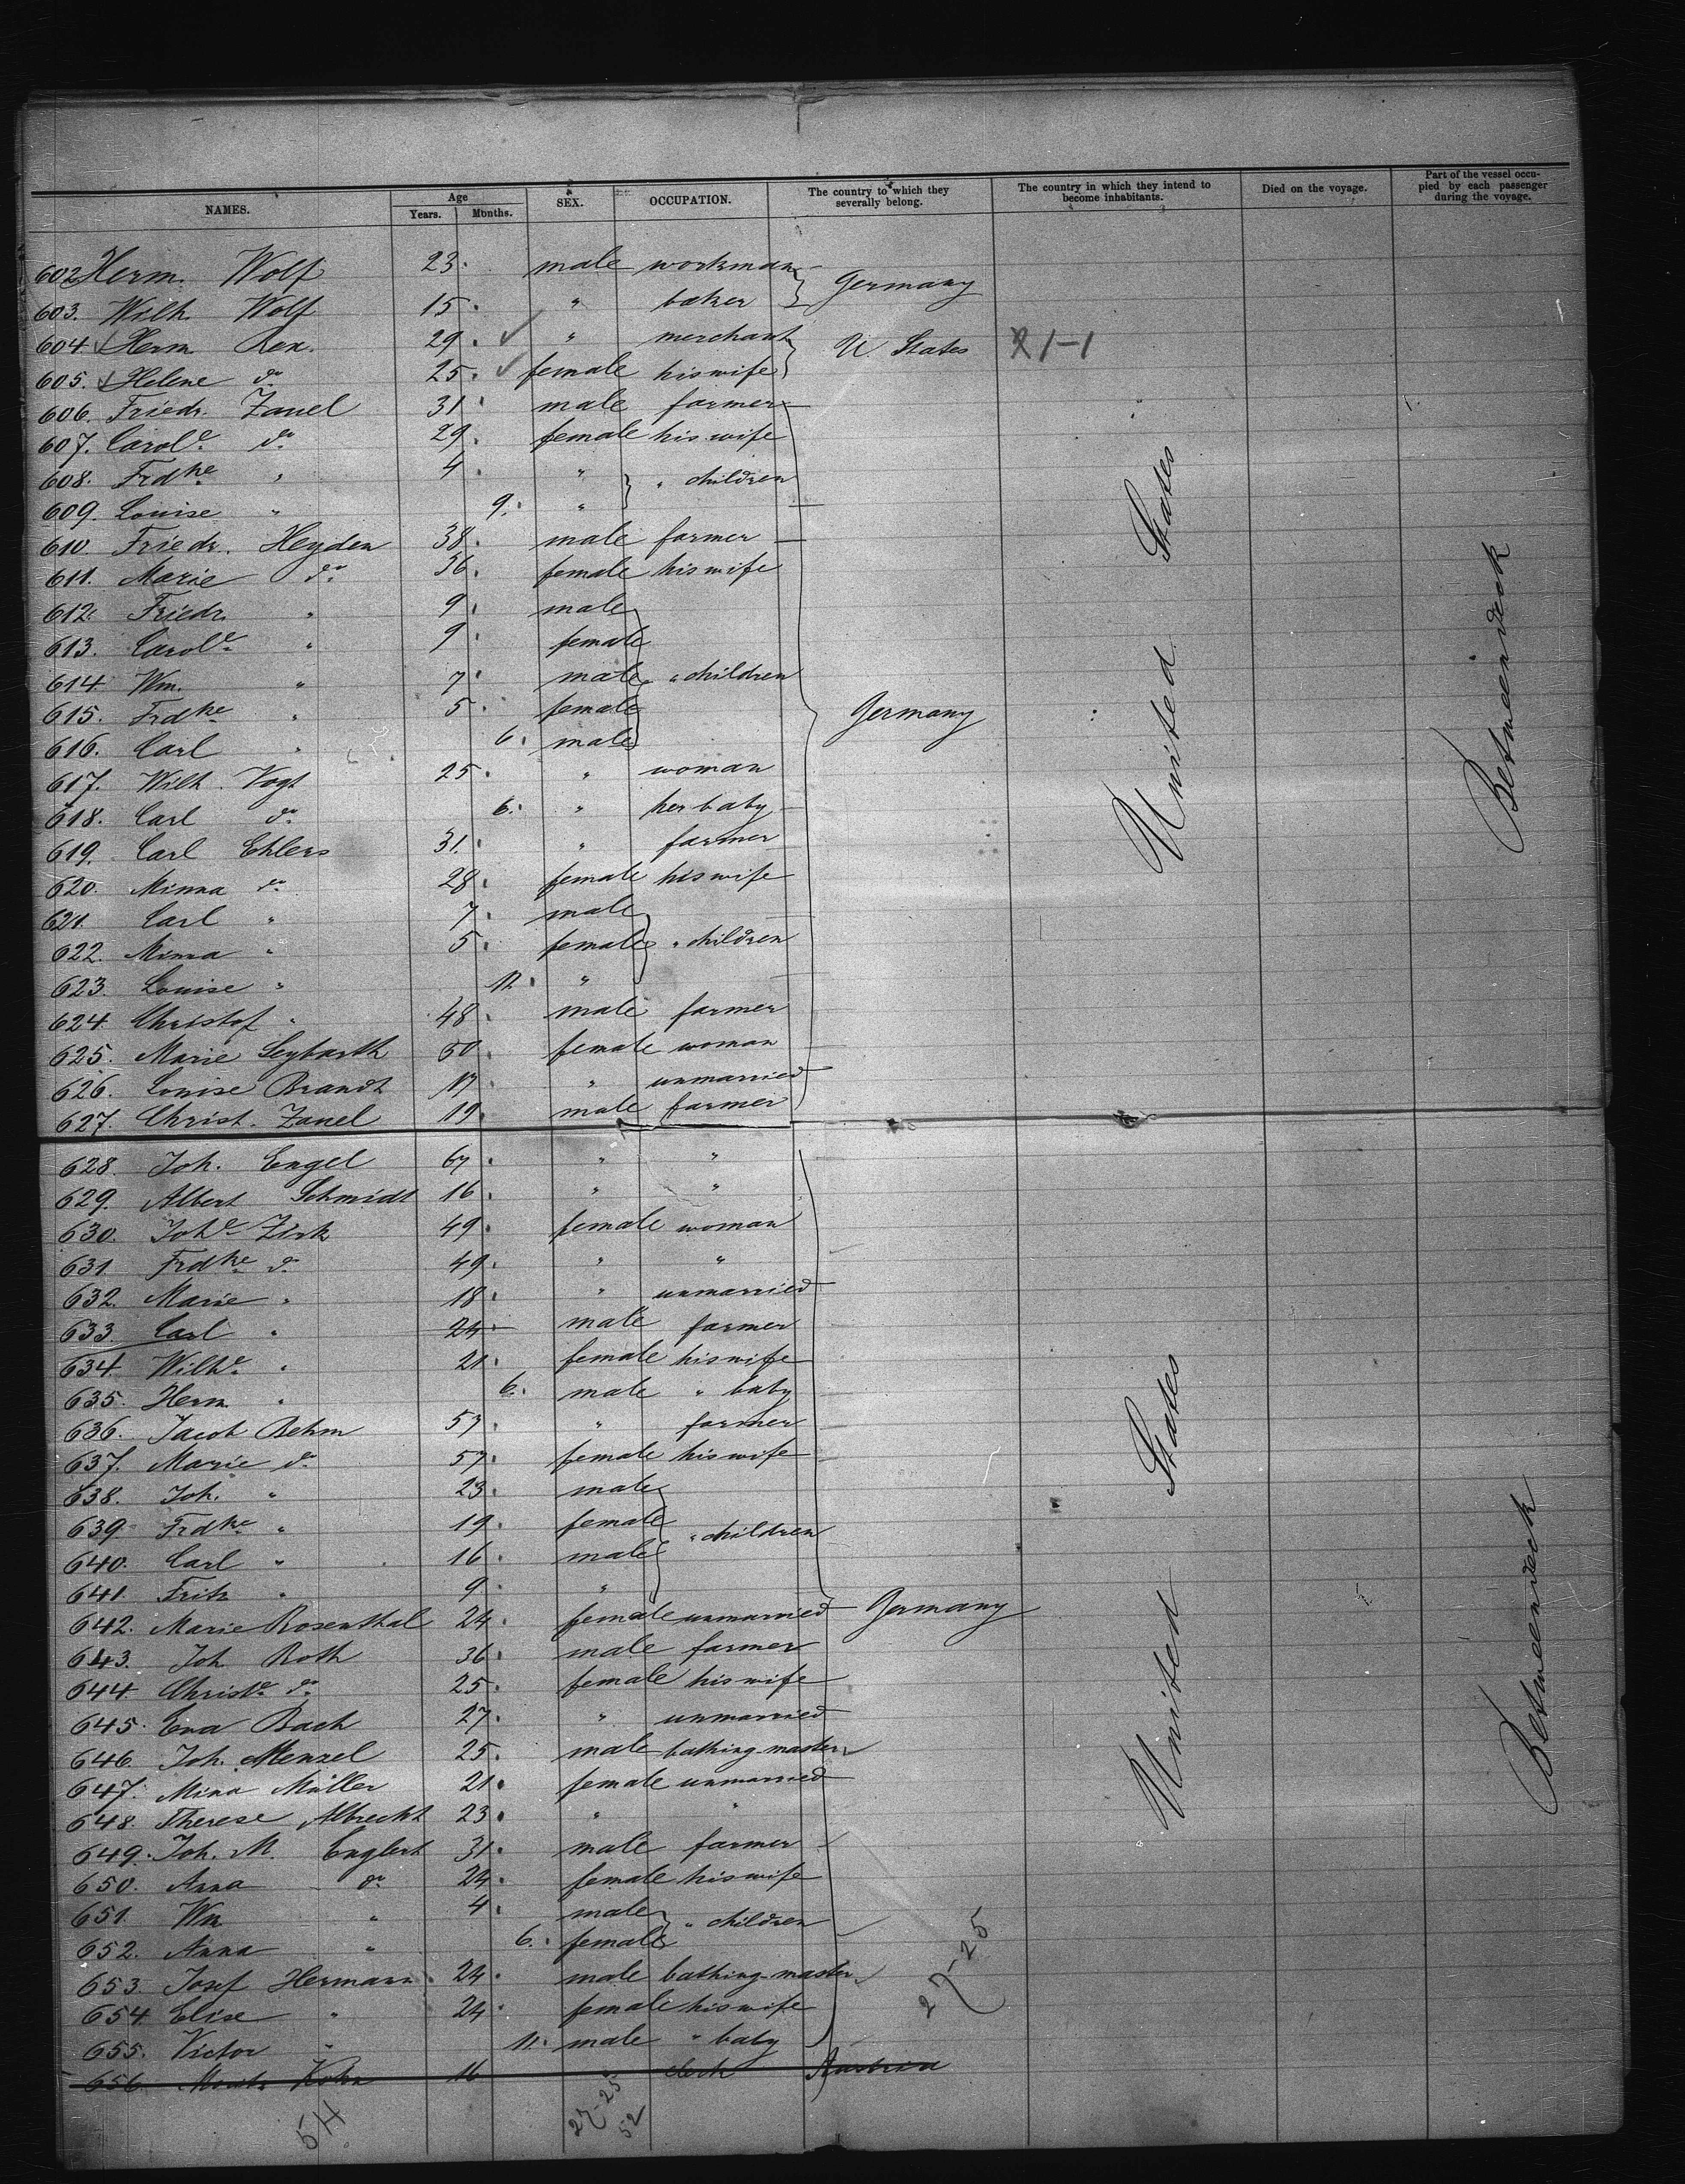 NAMES. Age Years. Months. SEX. OCCUPATION. The country to which they severally belong. The country in which they intend to become inhabitants. Died on the voyage. Part of the vessel occupied by each passenger during the voyage.
602 Herm. Wolf 23. male workman Germany
603. Wilh. Wolf 15. " baker
604 Herm. Rex. 29. " merchant U. States 21-1
605. Helene do 25. female his wife
606. Friedr. Zauel 31 male farmer
607. Carole. do 29. female his wife
608. Frdke " 4. " " children
609. Louise " 9. "
610. Friedr. Heyden 38. male farmer
611. Marie do 36. female his wife
612. Friedr. " 9. male
613. Carole. " 9. female
614 Wm. " 7. male " children
615. Frdke " 5. female Germany United States Betweendeck
616. Carl " 6. male
617. Wilh. Vogt 25. " woman
618. Carl do 6. " her baby
619. Carl Ehlers 31. " farmer
620. Minna do 28. female his wife
621. Carl " 7. male
622. Minna " 5. female " children
623. Louise " 11. "
624. Christof " 48. male farmer
625. Marie Seybarth 50. female woman
626. Louise Brandt 17. " unmarried
627. Christ. Zauel 19. male farmer
628. Joh. Engel 67. " "
629. Albert Schmidt 16. " "
630. Johe. Zirk 49. female woman
631 Frdke do 49. " "
632. Marie " 18. " unmarried
633. Carl " 24 male farmer
634. Wilhe. " 21. female his wife
635. Herm " 6. male " baby
636. Jacob Behm 57. " farmer
637. Marie do 57. female his wife
638. Joh. " 23. male
639. Frdke " 19. female " children
640. Carl " 16. male
641. Fritz " 9. "
642. Marie Rosenthal 24. female unmarried Germany United States Betweendeck
643. Joh Roth 36. male farmer
644. Christe. do 25. female his wife
645. Eva Bach 27. " unmarried
646. Joh. Menzel 25. male bathing-master
647. Mina Müller 21. female unmarried
648. Therese Albrecht 23. " "
649. Joh. M. Englert 31. male farmer
650. Anna do 24. female his wife
651. Wm " 4. male " children
652. Anna " 6. female
653. Josef Hermann 24. male bathing-master
654. Elise " 24. female his wife 27-25
655. Victor " 11. male " baby
656. Moritz Kohn 16 " clerk Austria
54 27-25
52